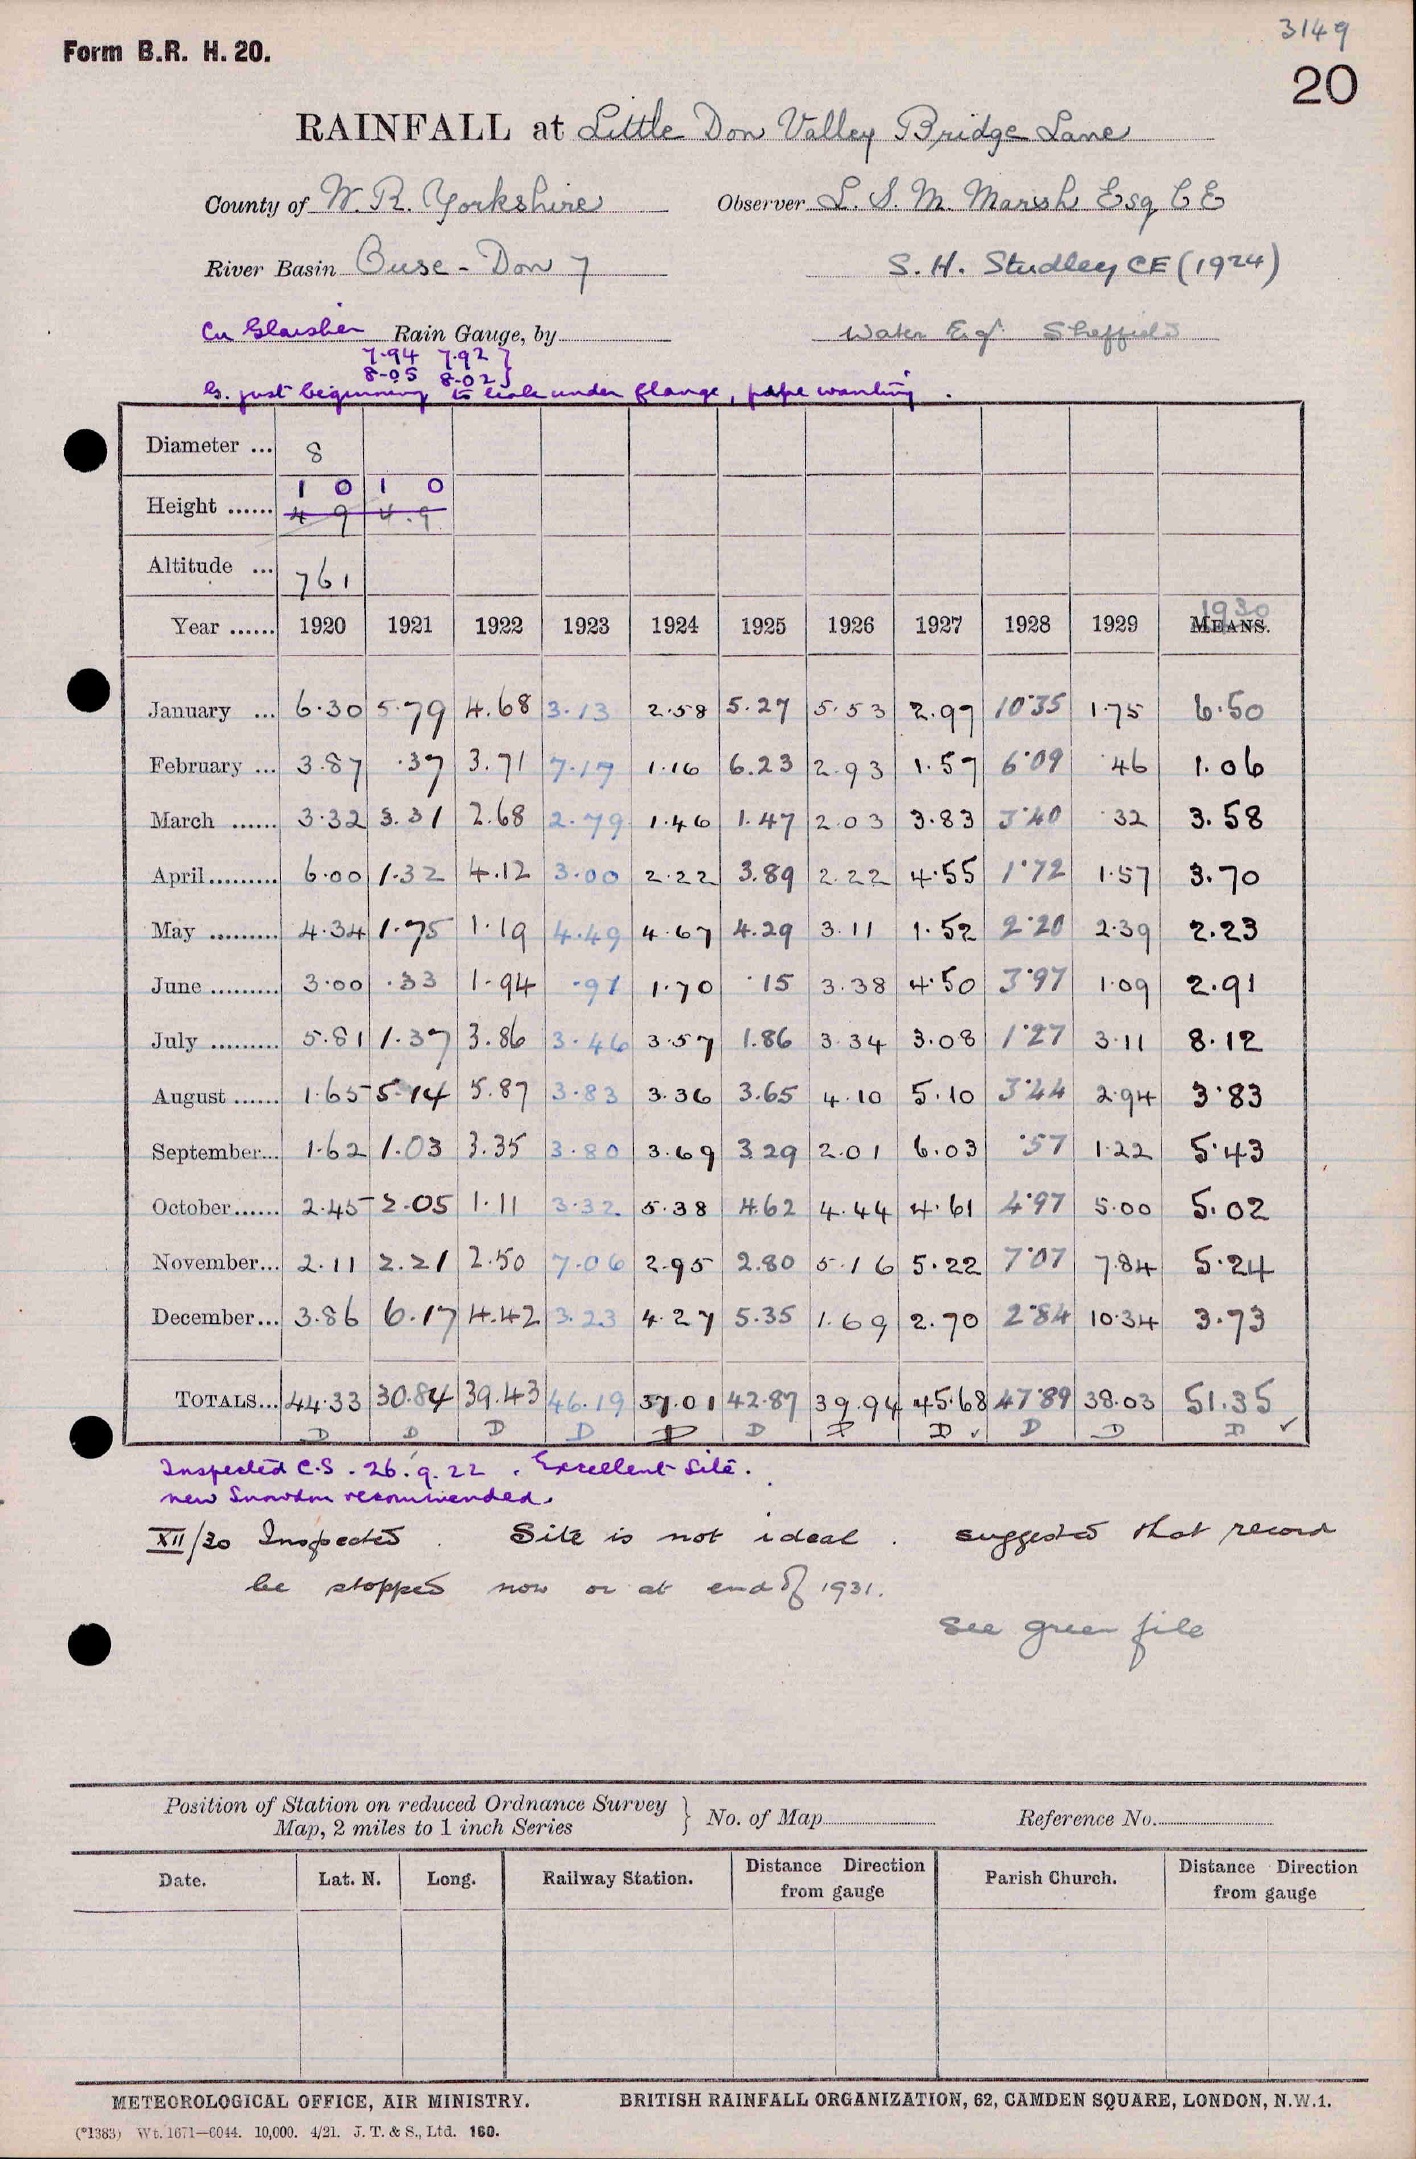 3149
Form B.R. H. 20.
20
RAINFALL at Little Don Valley Bridge Lane
County of W. R. Yorkshire Observer L. S. M. Marsh Esq C E
River Basin Ouse - Don 7 S. H. Studley CE (1924)
Cu Glaisher Rain Gauge, by Water Eqr Sheffield
7.94 7.92 }
8.05 8.02 }
G. just beginning to leak under flange, pipe wanting.
Diameter ... 8
1 0 1 0
Height ...... 4 9 4.9
Altitude ... 761
1930
Year ...... 1920 1921 1922 1923 1924 1925 1926 1927 1928 1929 MEANS.
January ... 6.30 5.79 4.68 3.13 2.58 5.27 5.53 2.97 10.35 1.75 6.50
February ... 3.87 .37 3.71 7.17 1.16 6.23 2.93 1.57 6.09 .46 1.06
March ...... 3.32 3.31 2.68 2.79 1.46 1.47 2.03 3.83 3.40 .32 3.58
April......... 6.00 1.32 4.12 3.00 2.22 3.89 2.22 4.55 1.72 1.57 3.70
May ......... 4.34 1.75 1.19 4.49 4.67 4.29 3.11 1.52 2.20 2.39 2.23
June ......... 3.00 .33 1.94 .91 1.70 .15 3.38 4.50 3.97 1.09 2.91
July ......... 5.81 1.37 3.86 3.46 3.57 1.86 3.34 3.08 1.27 3.11 8.12
August ...... 1.65 5.14 5.87 3.83 3.36 3.65 4.10 5.10 3.44 2.94 3.83
September... 1.62 1.03 3.35 3.80 3.69 3.29 2.01 6.03 .57 1.22 5.43
October...... 2.45 2.05 1.11 3.32 5.38 4.62 4.44 4.61 4.97 5.00 5.02
November... 2.11 2.21 2.50 7.06 2.95 2.80 5.16 5.22 7.07 7.84 5.24
December... 3.86 6.17 4.42 3.23 4.27 5.35 1.69 2.70 2.84 10.34 3.73
TOTALS... 44.33 30.84 39.43 46.19 37.01 42.87 39.94 45.68 47.89 38.03 51.35
D D D D D D D D ✓ D D D ✓
Inspected C.S. 26.9.22. Excellent site.
new Snowdon recommended.
XII/30 Inspected. Site is not ideal. suggested that record
be stopped now or at end of 1931.
see green file
Position of Station on reduced Ordnance Survey
Map, 2 miles to 1 inch Series } No. of Map Reference No.
Date. Lat. N. Long. Railway Station. Distance from gauge Direction Parish Church. Distance from gauge Direction
METEOROLOGICAL OFFICE, AIR MINISTRY. BRITISH RAINFALL ORGANIZATION, 62, CAMDEN SQUARE, LONDON, N.W.1.
(*1383) Wt. 1671—6044. 10,000. 4/21. J. T. & S., Ltd. 160.